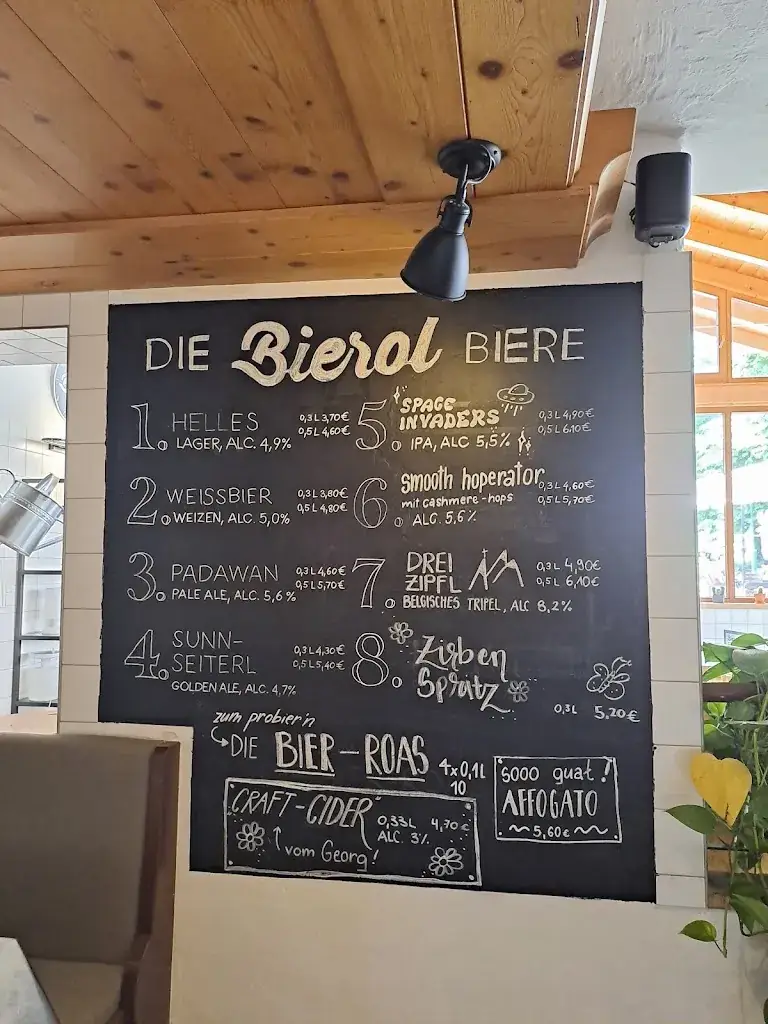 DIE Bierol BIERE
1. HELLES
LAGER, ALC. 4,9%
0,3 L 3,70€
0,5 L 4,60€
2. WEISSBIER
WEIZEN, ALC. 5,0%
0,3 L 3,80€
0,5 L 4,80€
3. PADAWAN
PALE ALE, ALC. 5,6%
0,3 L 4,60€
0,5 L 5,70€
4. SUNN-
SEITERL
GOLDEN ALE, ALC. 4,7%
0,3 L 4,30€
0,5 L 5,40€
5. SPACE
INVADERS
IPA, ALC 5,5%
0,3 L 4,90€
0,5 L 6,10€
6. Smooth hoperator
mit cashmere-hops
ALC. 5,6%
0,3 L 4,60€
0,5 L 5,70€
7. DREI
ZIPFL
BELGISCHES TRIPEL, ALC 8,2%
0,3 L 4,90€
0,5 L 6,10€
8. Zirben
Spritz
0,3L 5,20€
zum probier'n
DIE BIER-ROAS 4x0,1L
10
"CRAFT-CIDER"
0,33L 4,70€
ALC. 3%
vom Georg!
sooo guat!
AFFOGATO
5,60€